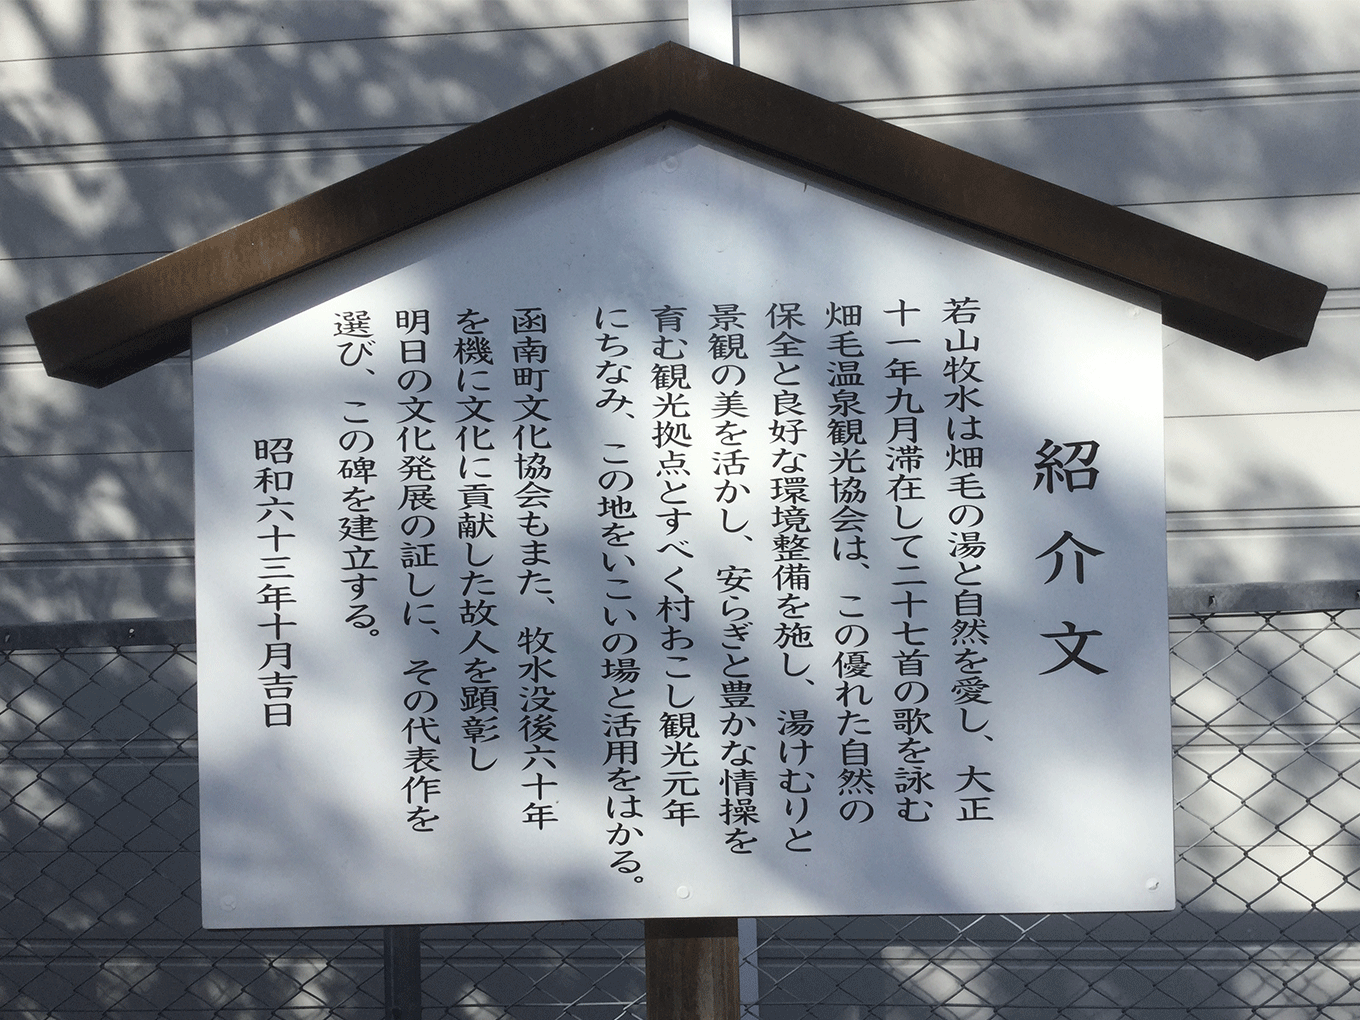 紹介文
若山牧水は畑毛の湯と自然を愛し、大正
十一年九月滞在して二十七首の歌を詠む
畑毛温泉観光協会は、この優れた自然の
保全と良好な環境整備を施し、湯けむりと
景観の美を活かし、安らぎと豊かな情操を
育む観光拠点とすべく村おこし観光元年
にちなみ、この地をいこいの場と活用をはかる。
函南町文化協会もまた、牧水没後六十年
を機に文化に貢献した故人を顕彰し
明日の文化発展の証しに、その代表作を
選び、この碑を建立する。
昭和六十三年十月吉日